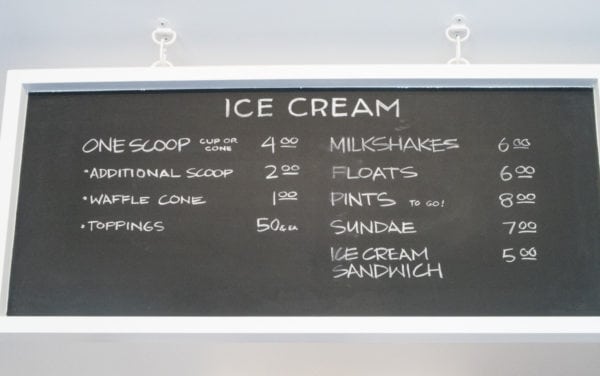 ICE CREAM
ONE SCOOP CUP OR CONE 4 00
•ADDITIONAL SCOOP 2 00
•WAFFLE CONE 1 00
•TOPPINGS 50¢ EA
MILKSHAKES 6 00
FLOATS 6 00
PINTS TO GO! 8 00
SUNDAE 7 00
ICE CREAM 5 00
SANDWICH